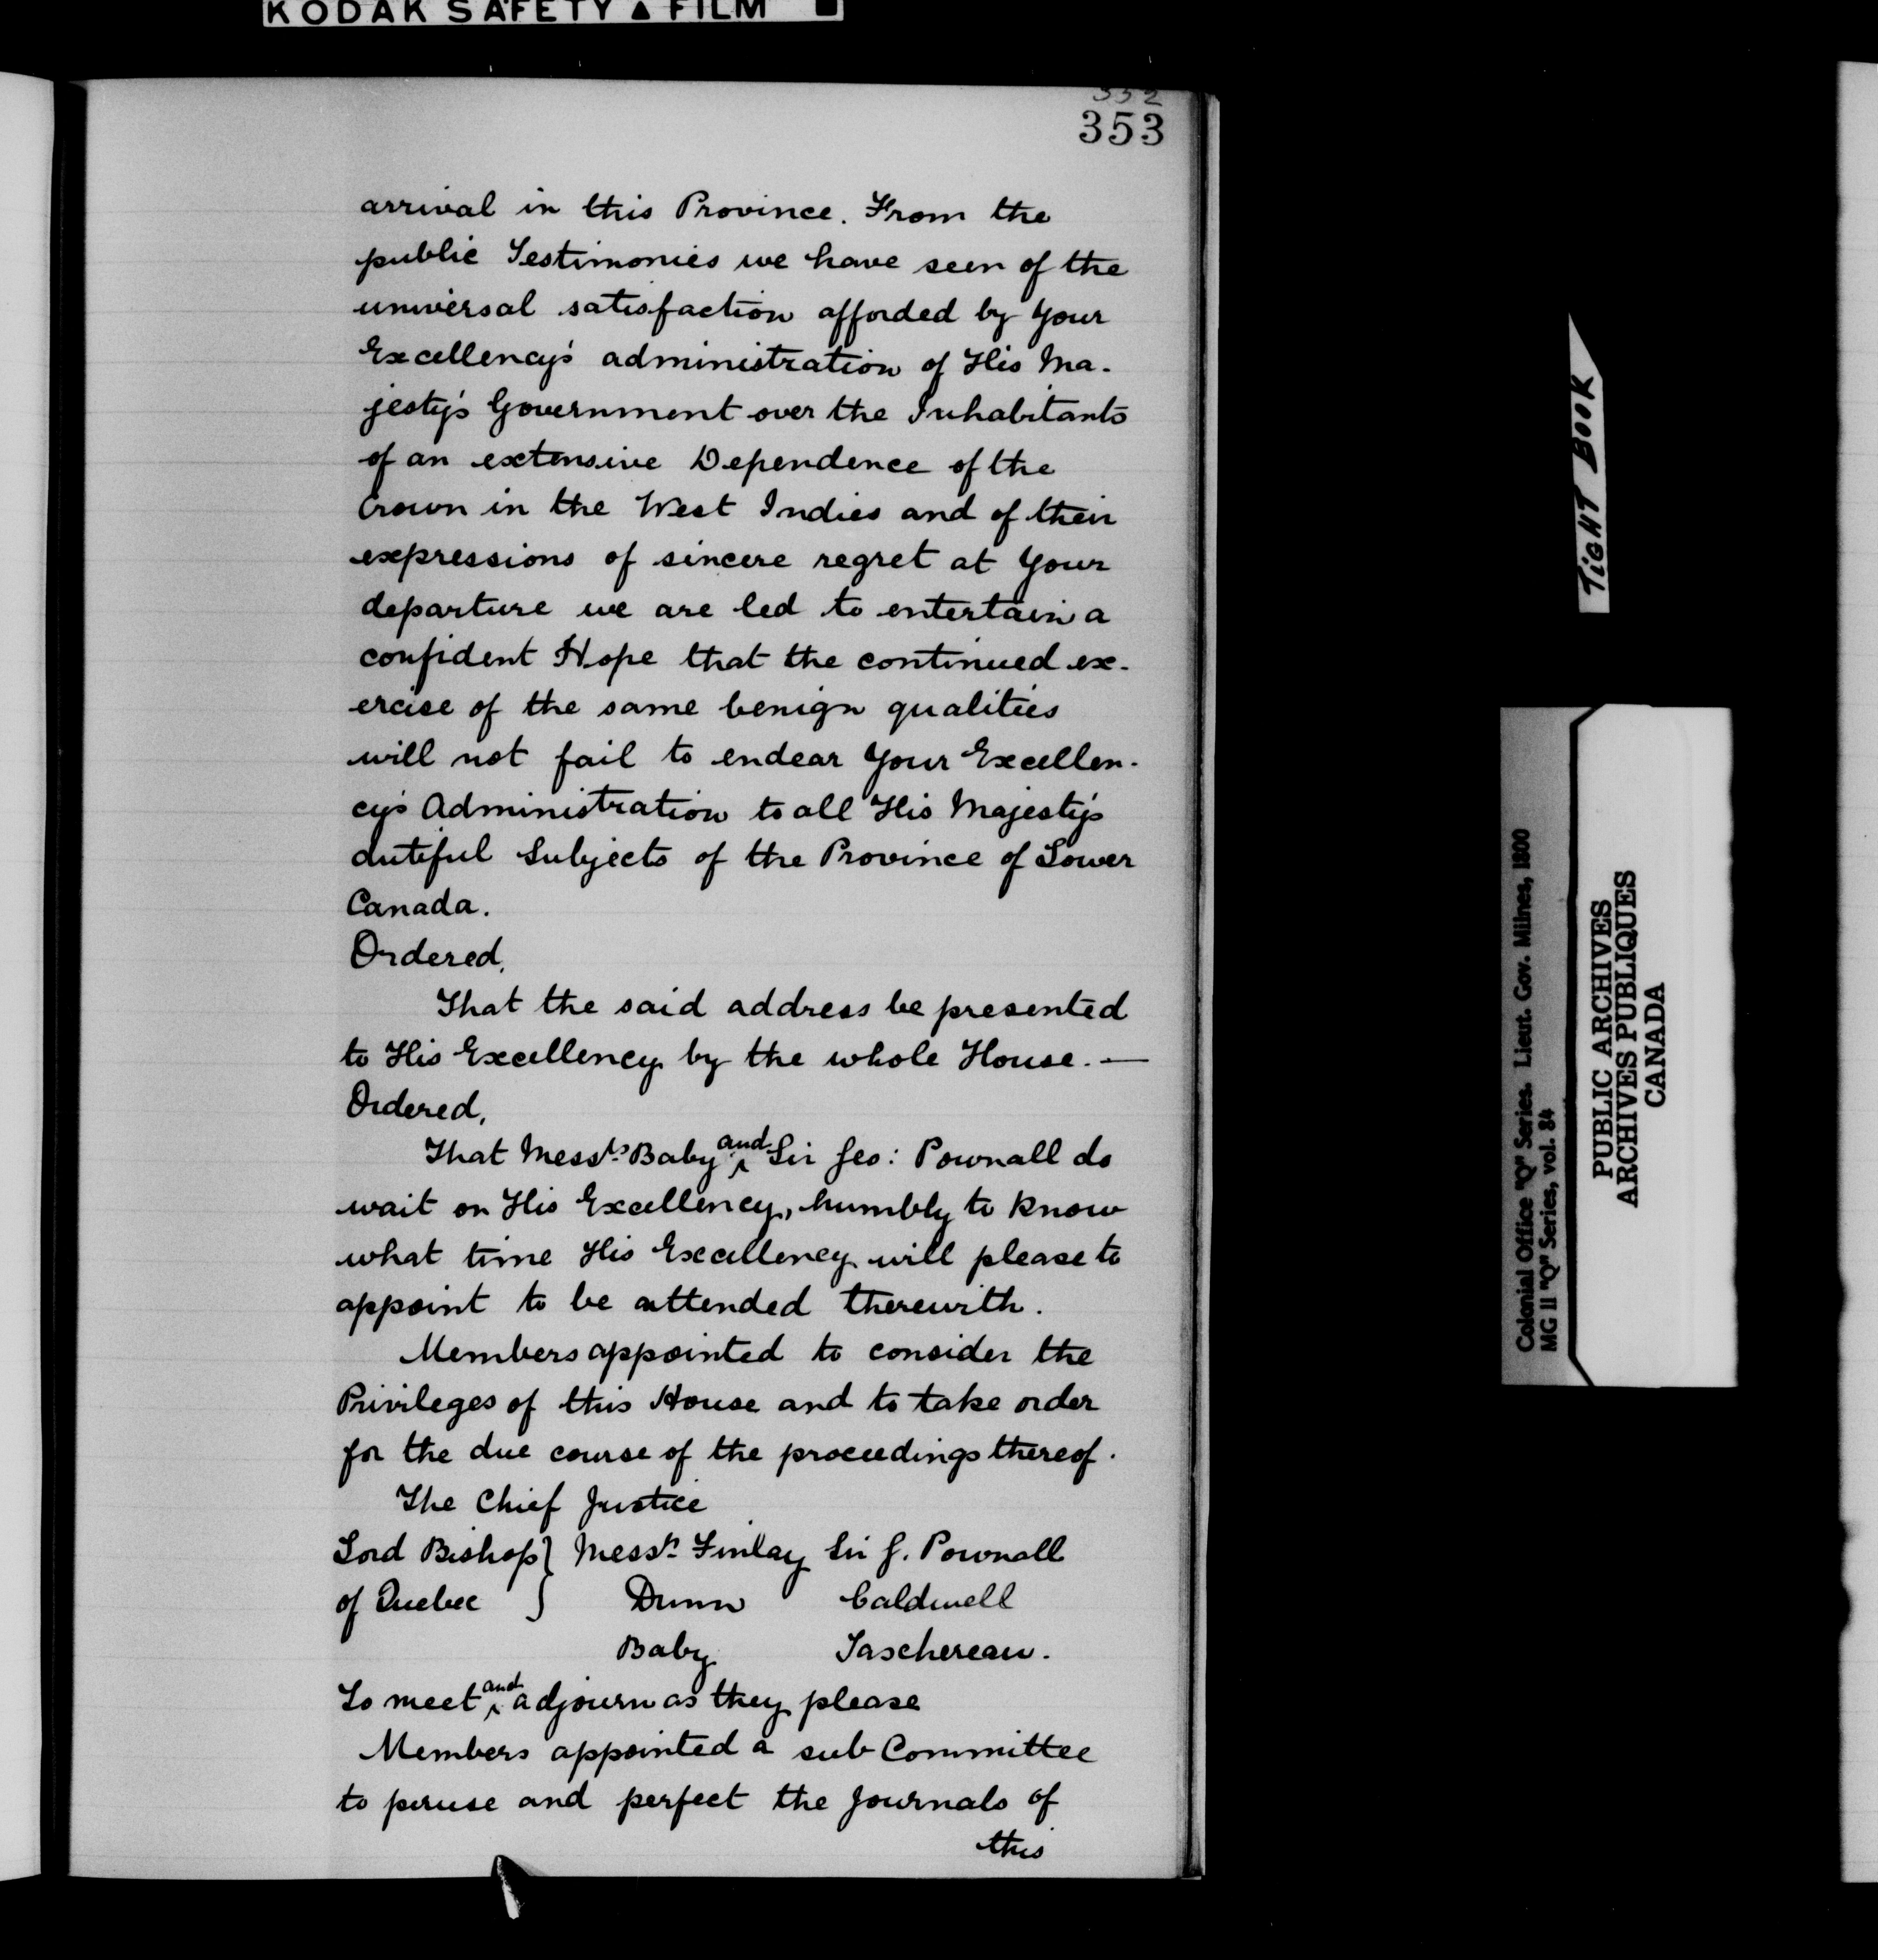 KODAK SAFETY ▲ FILM
332
353
arrival in this Province. From the
public Testimonies we have seen of the
universal satisfaction afforded by Your
Excellency's administration of His Ma-
jesty's Government over the Inhabitants
of an extensive Dependence of the
Crown in the West Indies and of their
expressions of sincere regret at Your
departure we are led to entertain a
confident Hope that the continued ex-
ercise of the same benign qualities
will not fail to endear Your Excellen-
cy's Administration to all His Majesty's
dutiful Subjects of the Province of Lower
Canada.
Ordered,
That the said address be presented
to His Excellency by the whole House. —
Ordered,
That Messrs Baby and Sir Geo: Pownall do
wait on His Excellency, humbly to know
what time His Excellency will please to
appoint to be attended therewith.
Members appointed to consider the
Privileges of this House and to take order
for the due course of the proceedings thereof.
The Chief Justice
Lord Bishop } Messrs Finlay Sir G. Pownall
of Quebec } Dunn Caldwell
Baby Taschereau.
To meet and adjourn as they please
Members appointed a sub Committee
to peruse and perfect the Journals of
this
TIGHT BOOK
Colonial Office "Q" Series. Lieut. Gov. Milnes, 1800
MG 11 "Q" Series, vol. 84
PUBLIC ARCHIVES
ARCHIVES PUBLIQUES
CANADA